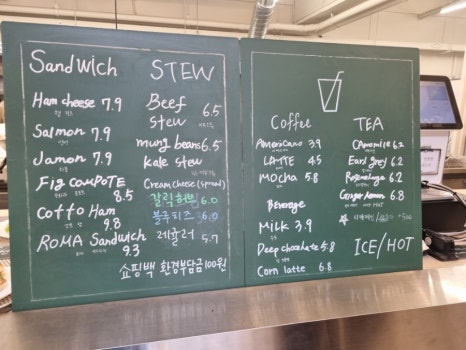 Sandwich
Ham cheese 7.9
Salmon 7.9
Jamon 7.9
Fig compote
8.5
Coffo Ham
9.8
ROMA Sandwich
9.3
STEW
Beef 6.5
stew
mung beans 6.5
kale stew
Cream cheese (spread)
갈릭허브 6.0
블루치즈 6.0
레귤러 5.7
쇼핑백 환경부담금 100원
Coffee
Americano 3.9
LATTE 4.5
MOCHA 5.8
Beverage
Milk 3.9
Deep chocolate 5.8
Corn latte 6.8
TEA
CAmomile 6.2
Earl grey 6.2
6.2
Ginger lemon 6.8
+500
ICE/HOT